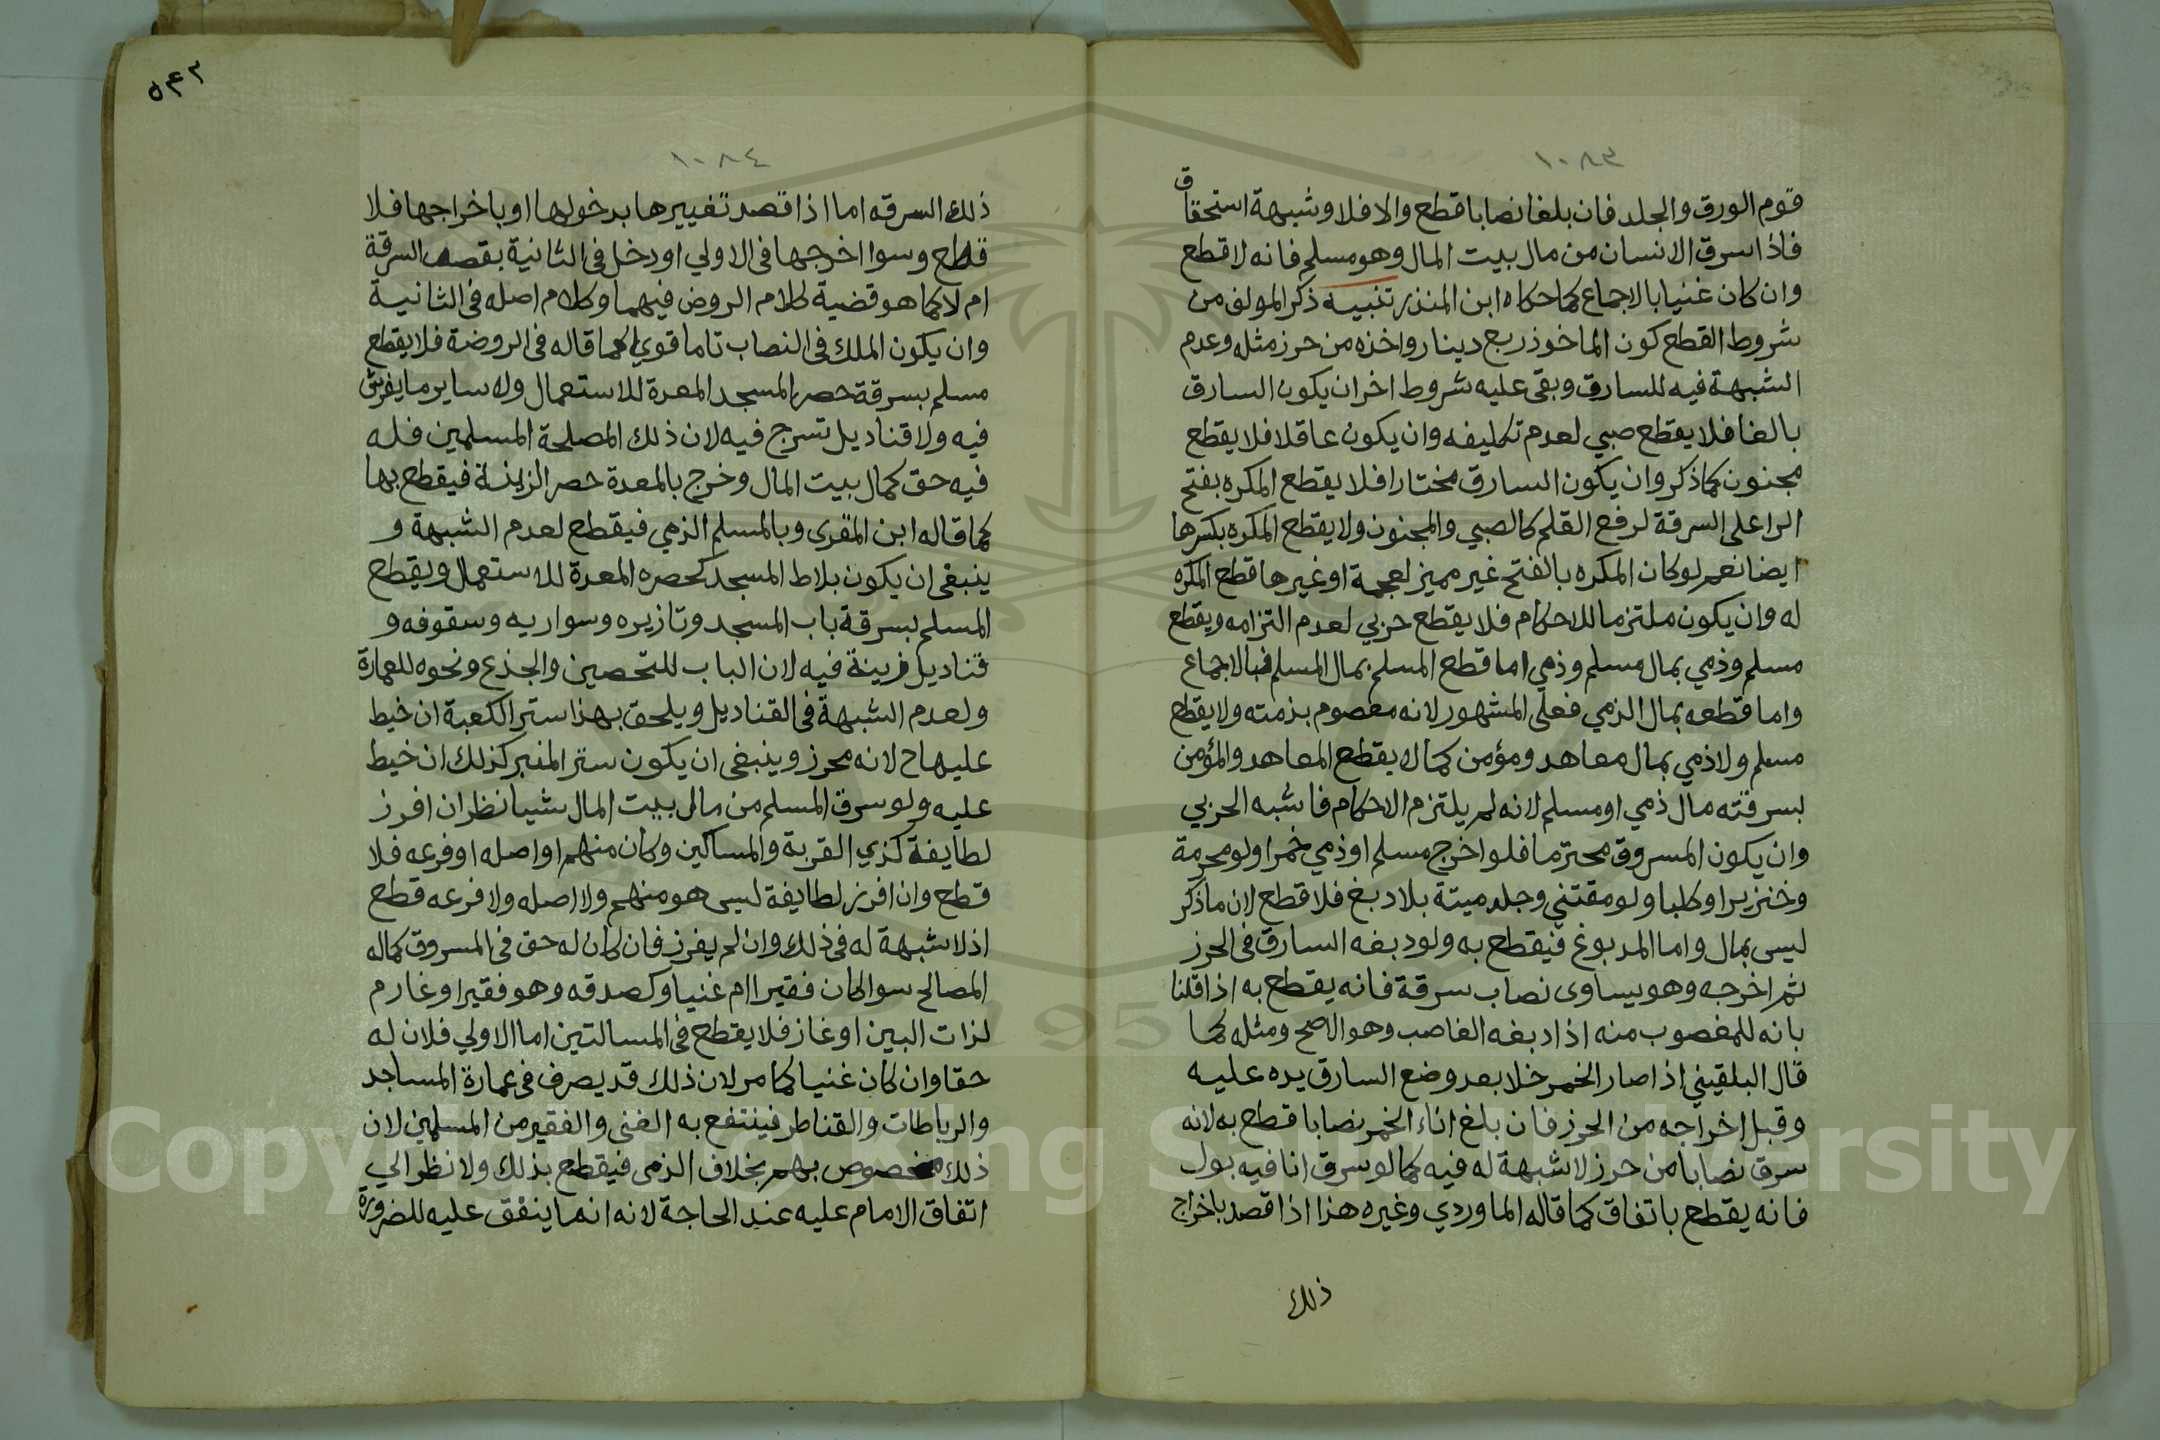 ١٠٨٣
قوم الورق والجلد فان بلغا نصابا قطع والا فلا وشبهة استحقاق
فاذا سرق الانسان من مال بيت المال وهو مسلم فانه لا قطع
وان كان غنيا بالاجماع كما حكاه ابن المنذر تنبيه ذكر المولف من
شروط القطع كون الماخوذ ربع دينار واخذه من حرز مثله وعدم
الشبهة فيه للسارق وبقى عليه شروط اخر ان يكون السارق
بالغا فلا يقطع صبي لعدم تكليفه وان يكون عاقلا فلا يقطع
مجنون كما ذكر وان يكون السارق مختارا فلا يقطع المكره بفتح
الرا على السرقة لرفع القلم كالصبي والمجنون ولا يقطع المكره بكسرها
ايضا نعم لو كان المكره بالفتح غير مميز لعجمة او غيرها قطع المكره
له وان يكون ملتزما للاحكام فلا يقطع حربي لعدم التزامه ويقطع
مسلم وذمي بمال مسلم وذمي اما قطع المسلم بمال المسلم فبالاجماع
واما قطعه بمال الذمي فعلى المشهور لانه معصوم بذمته ولا يقطع
مسلم ولا ذمي بمال معاهد ومؤمن كما لا يقطع المعاهد والمؤمن
بسرقته مال ذمي او مسلم لانه لم يلتزم الاحكام فاشبه الحربي
وان يكون المسروق محترما فلو اخرج مسلم او ذمي خمرا ولو محرمة
وخنزيرا وكلبا ولو مقتني وجلد ميتة بلا دبغ فلا قطع لان ما ذكر
ليس بمال واما المدبوغ فيقطع به ولو دبغه السارق فى الحرز
ثم اخرجه وهو يساوى نصاب سرقة فانه يقطع به اذا قلنا
بانه للمغصوب منه اذا دبغه الغاصب وهو الاصح ومثله كما
قال البلقيني اذا صار الخمر خلا بعد وضع السارق يده عليه
وقبل اخراجه من الحرز فان بلغ اناء الخمر نصابا قطع به لانه
سرق نصابا من حرز لا شبهة له فيه كما لو سرق انا فيه بول
فانه يقطع باتفاق كما قاله الماوردي وغيره هذا اذا قصد باخراج
ذلك
٥٤٣
١٠٨٤
ذلك السرقه اما اذا قصد تغييرها بدخولها او باخراجها فلا
قطع وسوا اخرجها فى الاولي او دخل فى الثانية بقصد السرقة
ام لا كما هو قضية كلام الروض فيهما وكلام اصله فى الثانية
وان يكون الملك فى النصاب تاما قويا كما قاله فى الروضة فلا يقطع
مسلم بسرقة حصر المسجد المعدة للاستعمال ولا ساير ما يفرش
فيه ولا قناديل تسرج فيه لان ذلك المصلحة المسلمين فله
فيه حق كمال بيت المال وخرج بالمعدة حصر الزينة فيقطع بها
كما قاله ابن المقرى وبالمسلم الذمي فيقطع لعدم الشبهة و
ينبغى ان يكون بلاط المسجد كحصره المعدة للاستعمال ويقطع
المسلم بسرقة باب المسجد وتازيره وسواريه وسقوفه و
قناديل زينة فيه لان الباب للتحصين والجذع ونحوه للعمارة
ولعدم الشبهة فى القناديل ويلحق بهذا ستر الكعبة ان خيط
عليها ح لانه محرز وينبغى ان يكون ستر المنبر كذلك ان خيط
عليه ولو سرق المسلم من مال بيت المال شيا نظر ان افرز
لطايفة كذي القربة والمساكين وكان منهم او اصله او فرعه فلا
قطع وان افرز لطايفة ليس هو منهم ولا اصله ولا فرعه قطع
اذ لا شبهة له فى ذلك وان لم يفرز فان كان له حق فى المسروق كماله
المصالح سوا كان فقيرا ام غنيا وكصدقه وهو فقيرا وغارم
لذات البين او غاز فلا يقطع فى المسالتين اما الاولي فلان له
حقا وان كان غنيا كما مر لان ذلك قد يصرف فى عمارة المساجد
والرباطات والقناطر فينتفع به الغنى والفقير من المسلمين لان
ذلك مخصوص بهم بخلاف الذمى فيقطع بذلك ولا نظر الي
اتفاق الامام عليه عند الحاجة لانه انما ينفق عليه للضرورة
Copyright © King Saud University
195